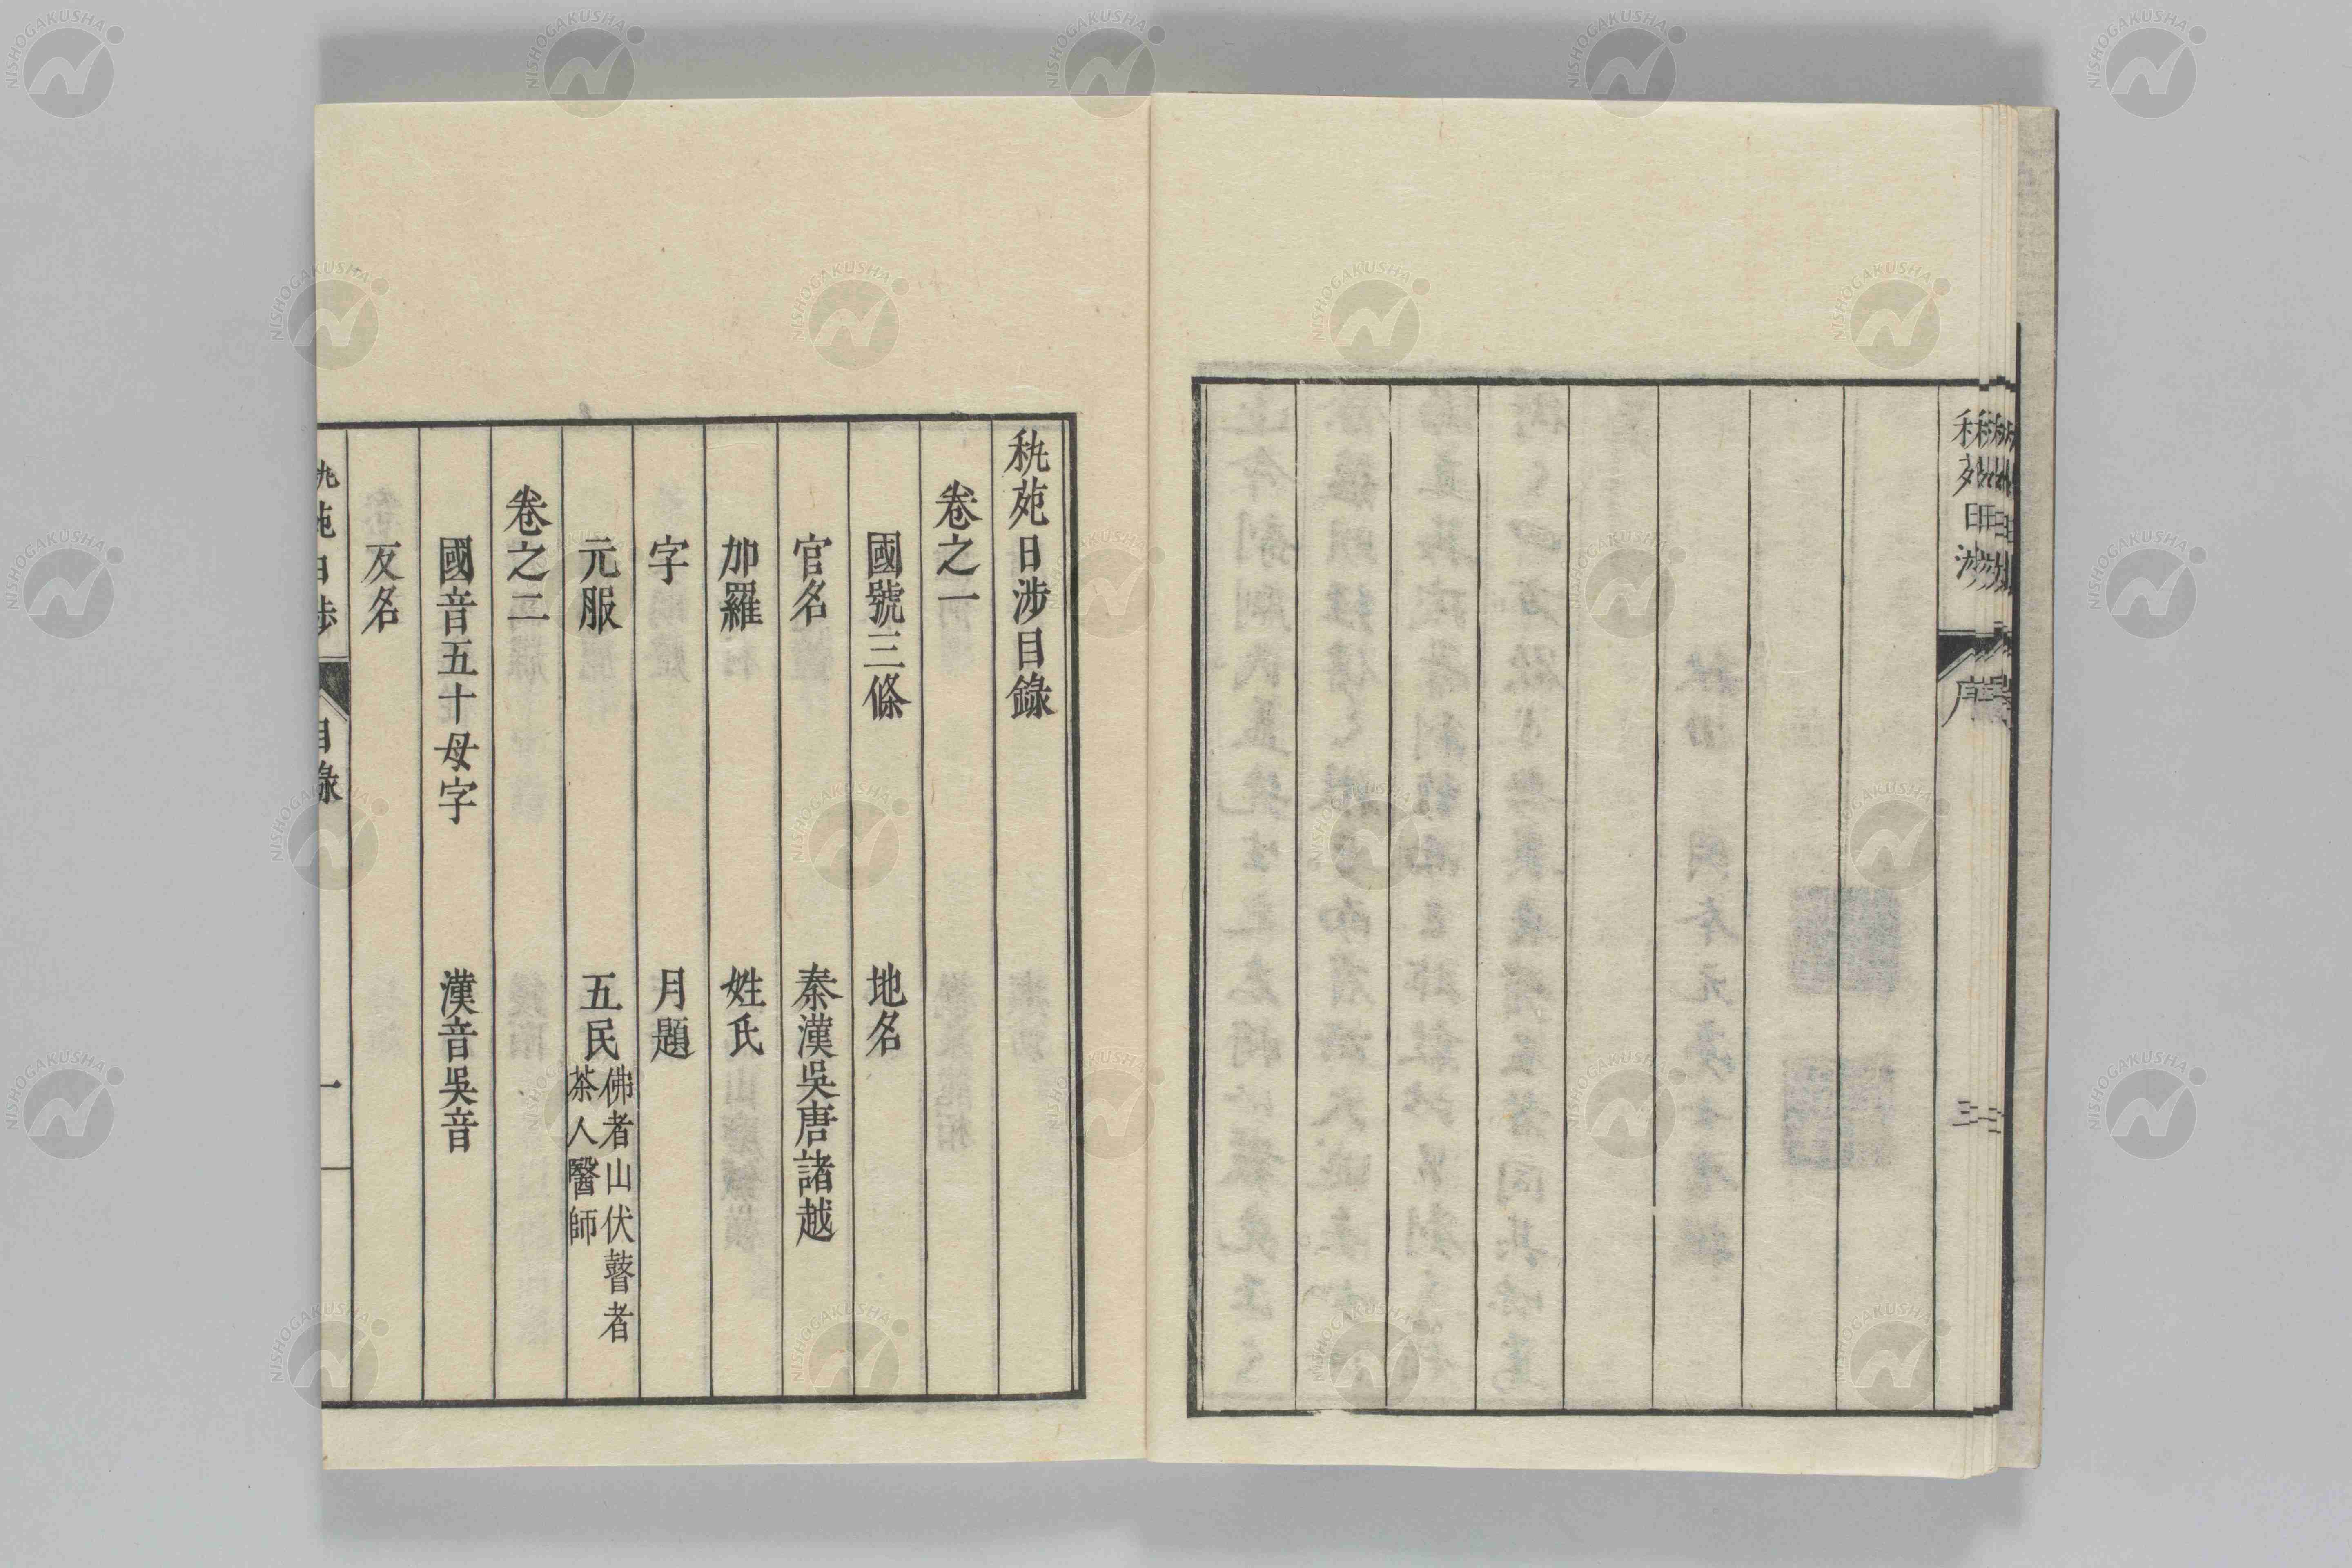 秇苑日涉目錄
卷之一
國號三條　地名
官名　秦漢吳唐諸越
加羅　姓氏
字　月題
元服　五民 佛者山伏瞽者
茶人醫師
卷之二
國音五十母字　漢音吳音
反名
目錄
一
序
三
NISHOGAKUSHA